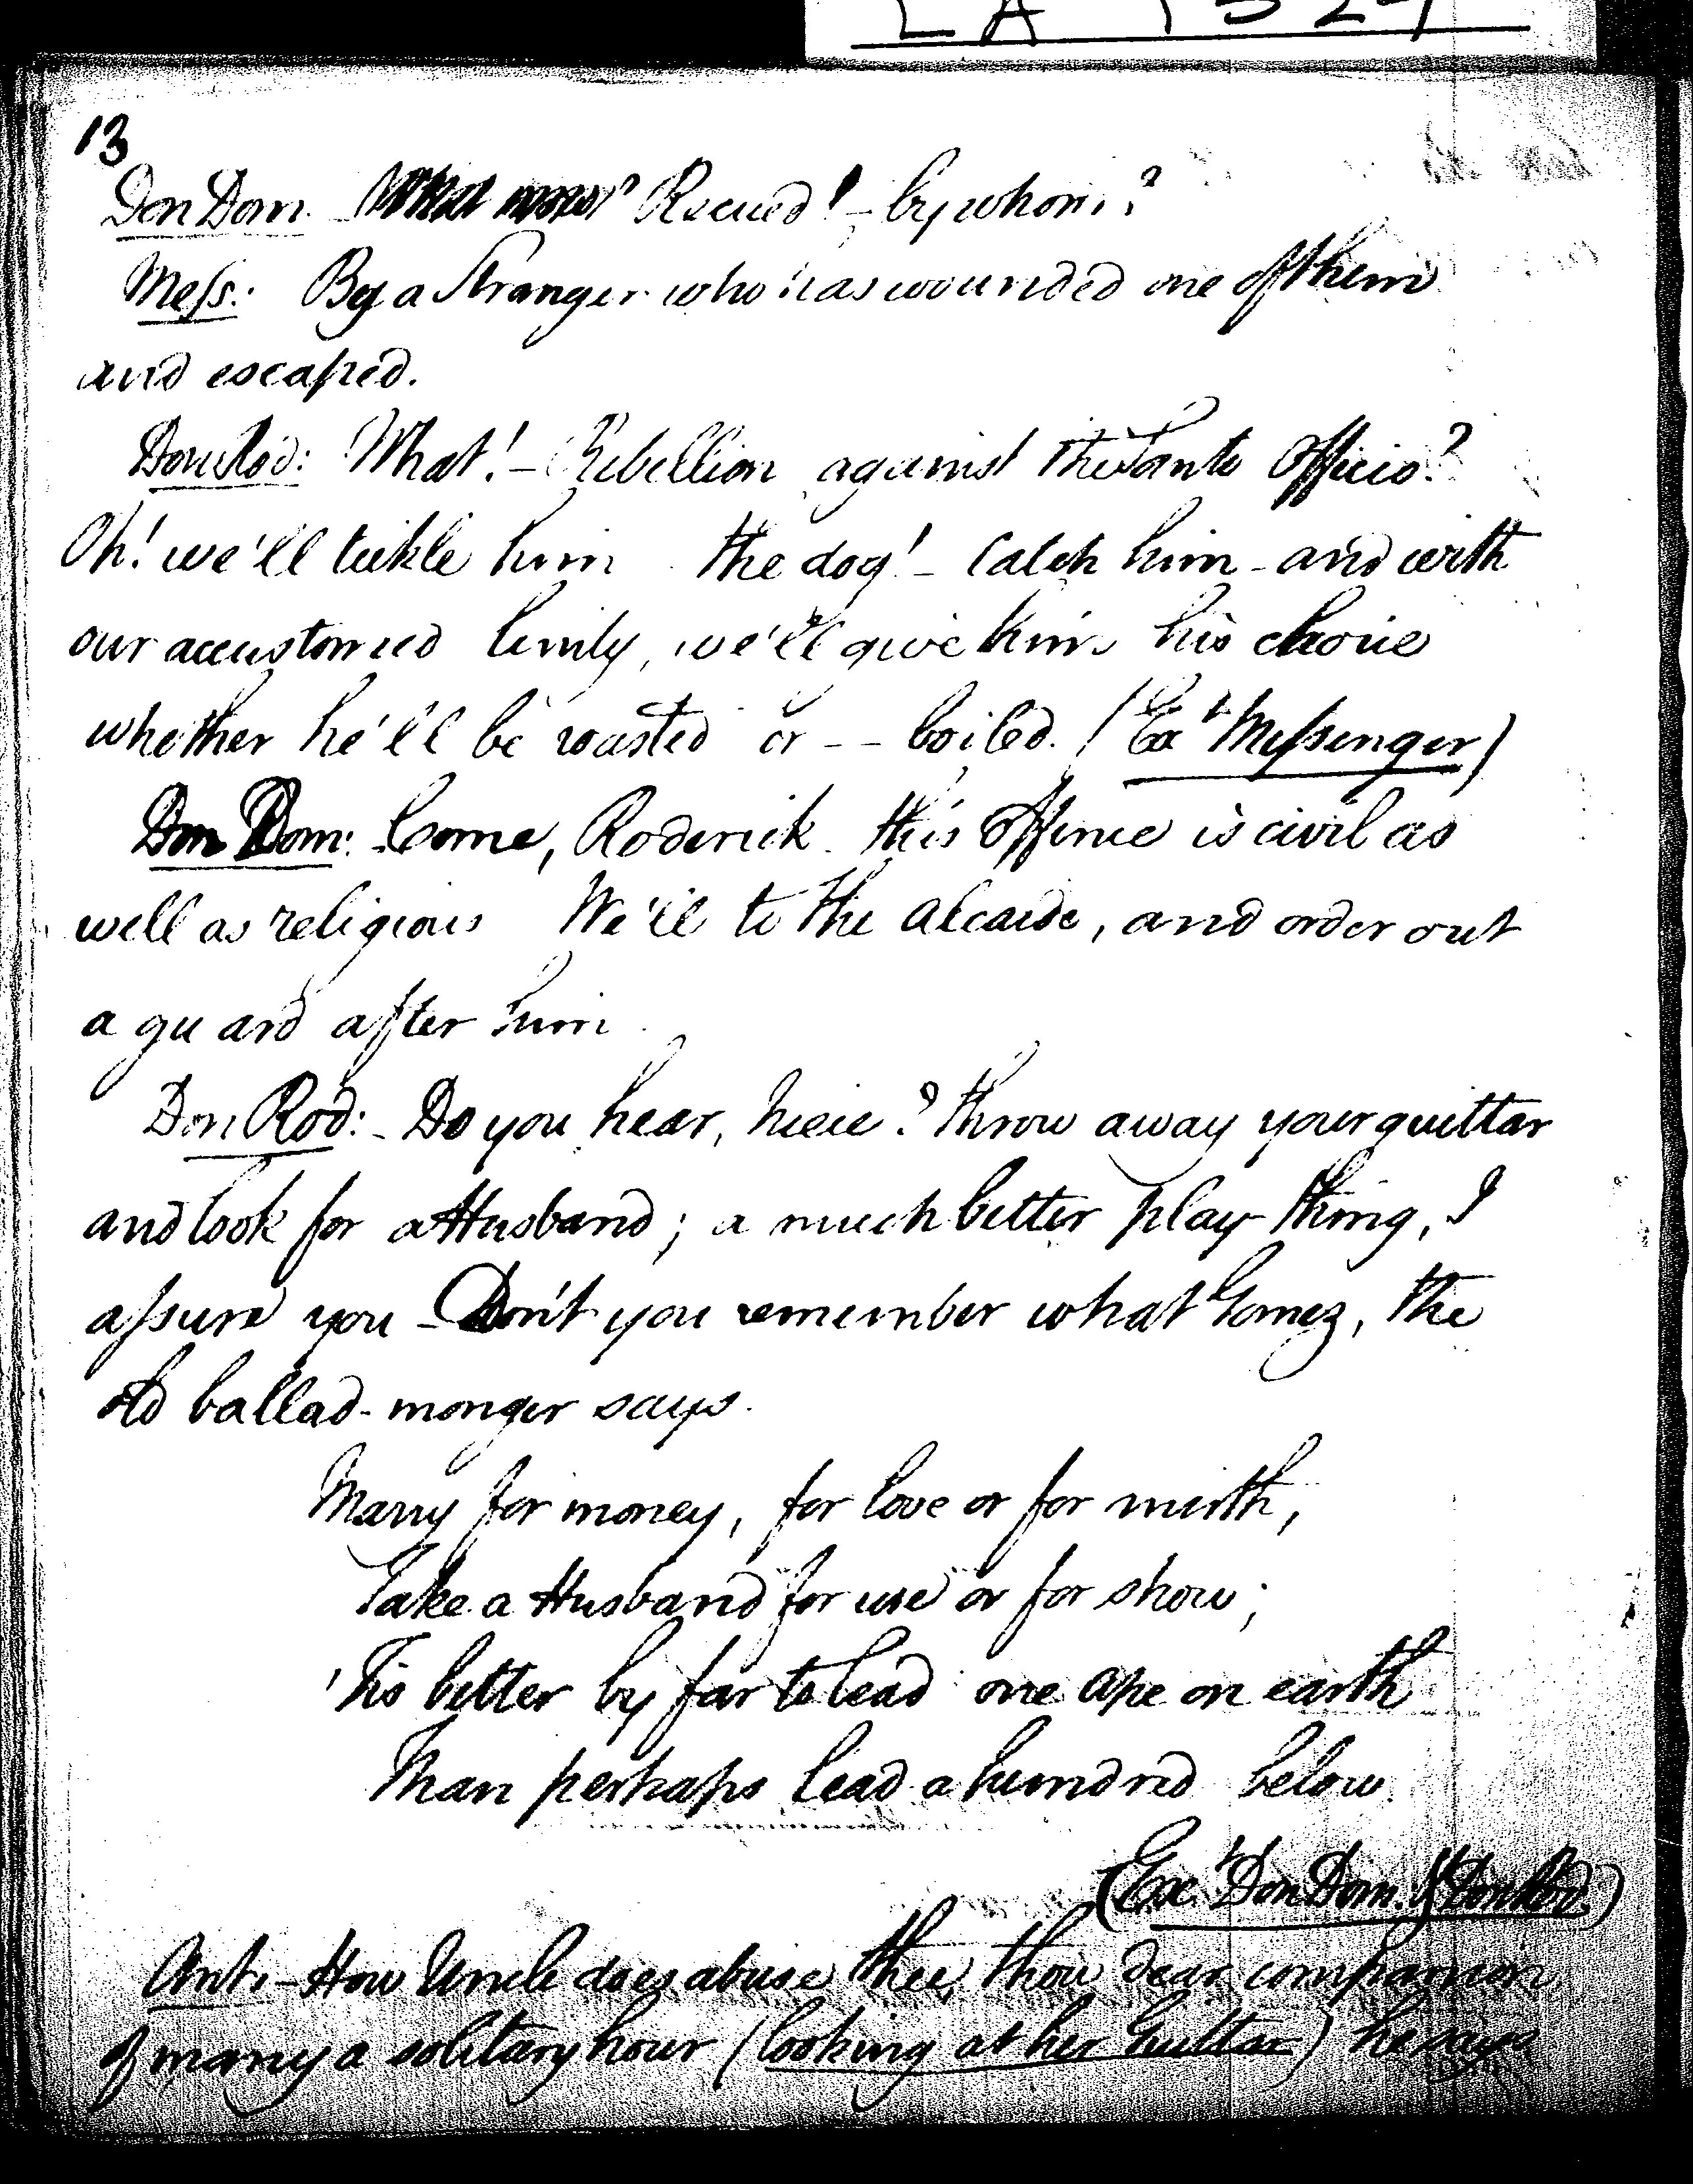 LA 1324
13
Don Dom. Rescued! - by whom?
Mess: By a Stranger who has wounded one of them
and escaped.
Don Rod: What! - Rebellion against the Santo Officio?
Oh! we'll tickle him the dog! - Catch him - and with
our accustomed lenity, we'll give him his choice
whether he'll be roasted or - - boiled. (Ext Messenger)
Don Dom: Come, Roderick. this Offence is civil as
well as religious We'll to the Alcaide, and order out
a guard after him.
Don Rod: - Do you hear, niece? throw away your guittar
and look for a Husband; a much better play-thing, I
assure you - Don't you remember what Gomez, the
old ballad-monger says.
Marry for money, for love or for mirth,
Take a Husband for use or for show;
'Tis better by far to lead one ape on earth
Than perhaps lead a hundred below.
(Ext Don Dom. & Don Rod.)
Ant. - How Uncle does abuse thee, thou dear companion
of many a solitary hour (looking at her Guittar) he says